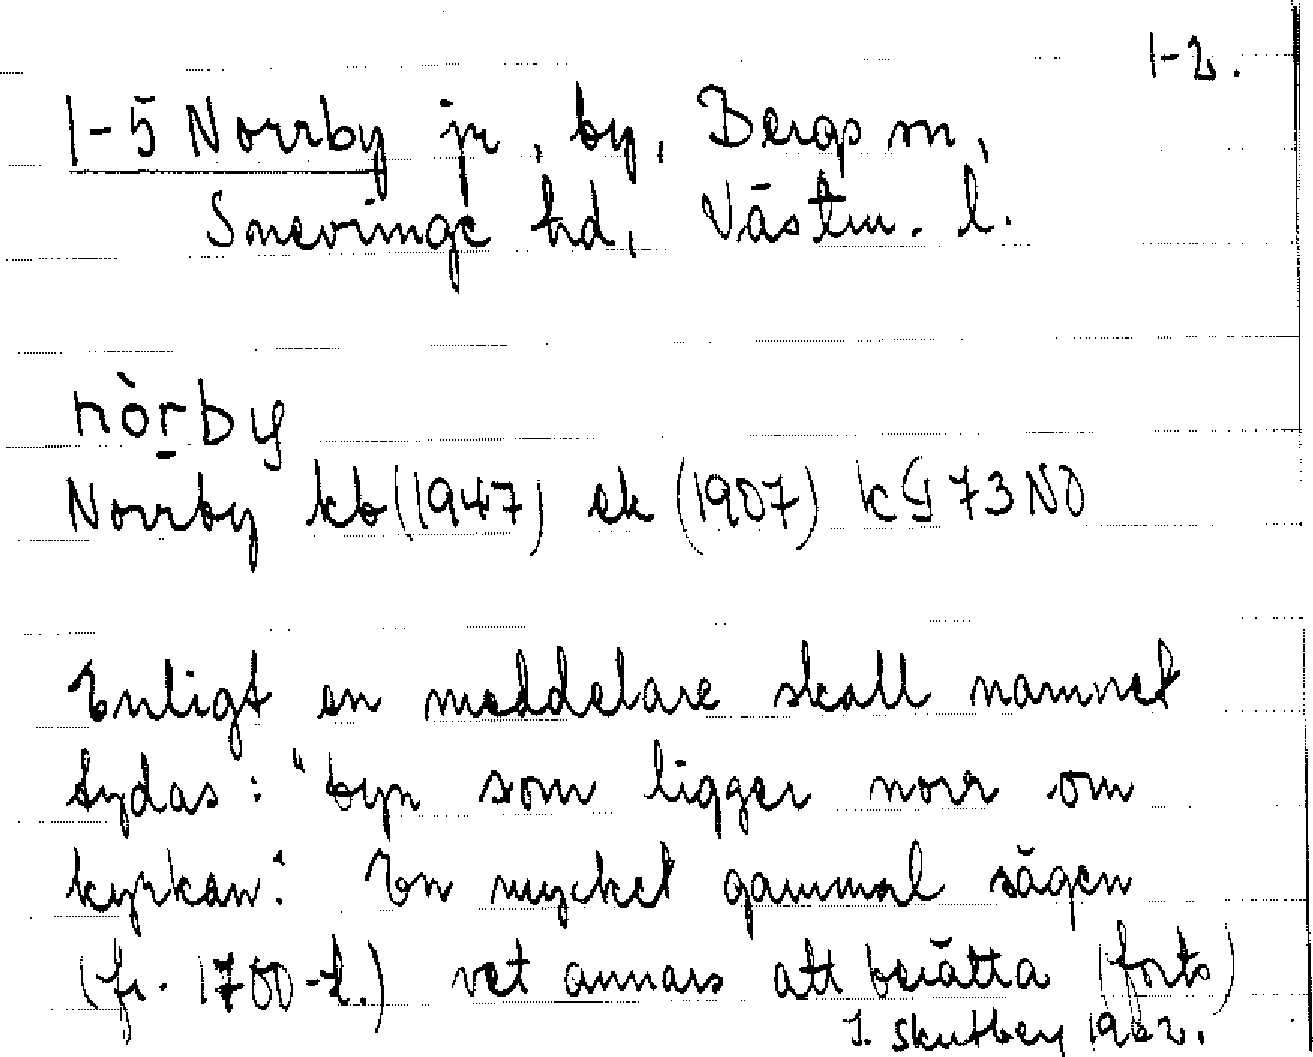 1-2.
1-5 Norrby jr, by, Bergs sn,
Snevringe hd, Västm. l.
nòrby
Norrby kb (1947) ek (1907) kG 73 NO
Enligt en meddelare skall namnet
tydas: "byn som ligger norr om
kyrkan." En mycket gammal sägen
(fr. 1700-t.) vet annars att berätta (forts)
I. Skutbey 1962.